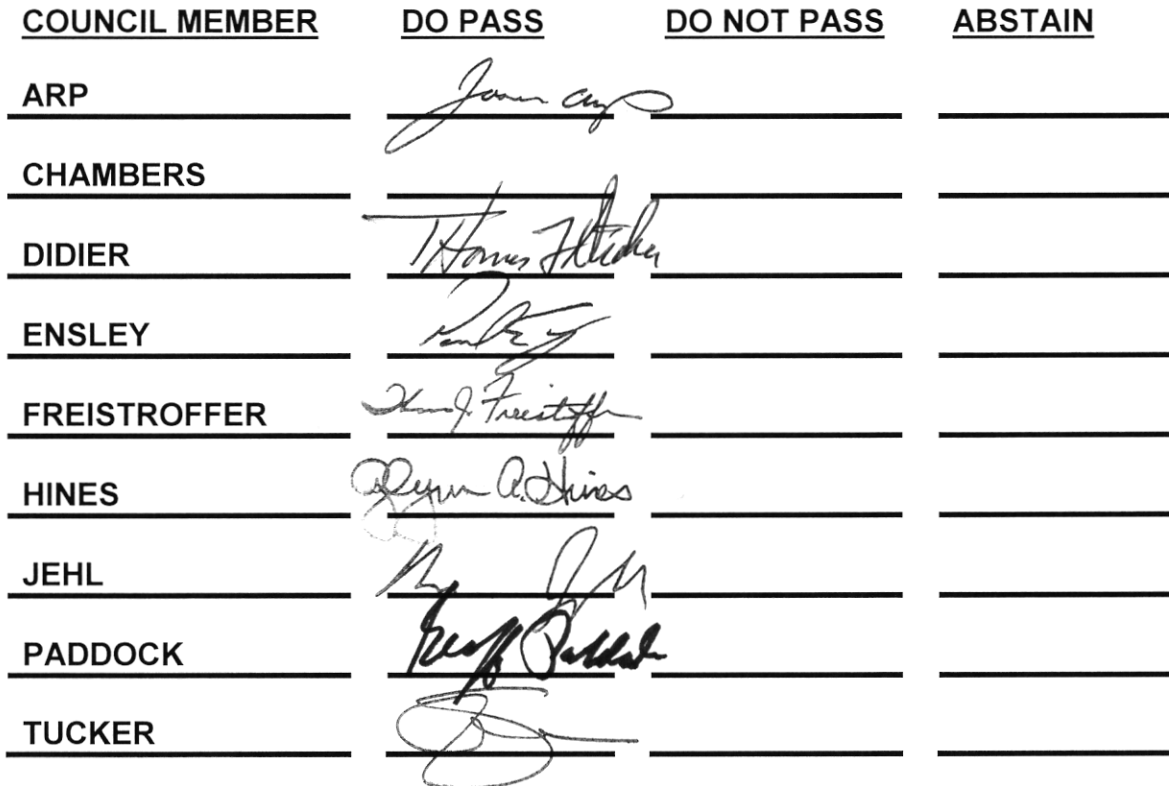 COUNCIL MEMBER DO PASS DO NOT PASS ABSTAIN
ARP Jason Arp
CHAMBERS
DIDIER Thomas
ENSLEY
FREISTROFFER Freistroffer
HINES Glynn A. Hines
JEHL
PADDOCK Geoff Paddock
TUCKER